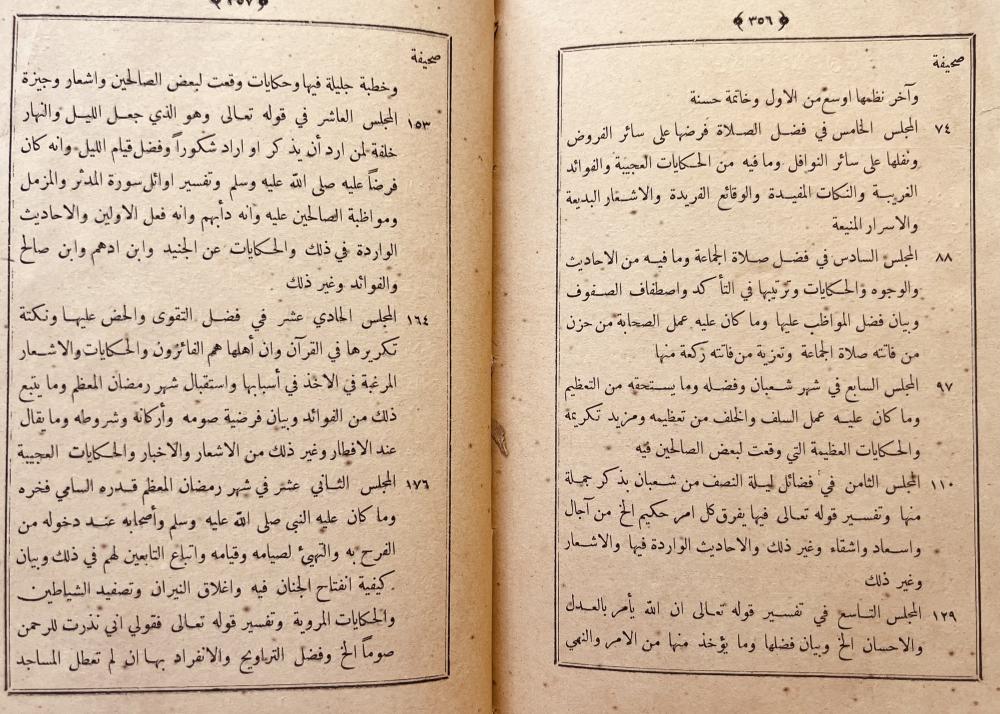 ﴿٣٥٦﴾
صحيفة
وآخر نظمها اوسع من الاول وخاتمة حسنة
٧٤ المجلس الخامس في فضل الصلاة فرضها على سائر الفروض
ونفلها على سائر النوافل وما فيه من الحكايات العجيبة والفوائد
الغريبة والنكات المفيدة والوقائع الفريدة والاشعار البديعة
والاسرار المنيعة
٨٨ المجلس السادس في فضل صلاة الجماعة وما فيه من الاحاديث
والوجوه والحكايات وترتيبها في التأكد واصطفاف الصفوف
وبيان فضل المواظب عليها وما كان عليه عمل الصحابة من حزن
من فاتته صلاة الجماعة وتعزية من فاتته ركعة منها
٩٧ المجلس السابع في شهر شعبان وفضله وما يستحقه من التعظيم
وما كان عليه عمل السلف والخلف من تعظيمه ومزيد تكريمة
والحكايات العظيمة التي وقعت لبعض الصالحين فيه
١١٠ المجلس الثامن في فضائل ليلة النصف من شعبان بذكر جملة
منها وتفسير قوله تعالى فيها يفرق كل امر حكيم الخ من آجال
واسعاد واشقاء وغير ذلك والاحاديث الواردة فيها والاشعار
وغير ذلك
١٢٩ المجلس التاسع في تفسير قوله تعالى ان الله يأمر بالعدل
والاحسان الخ وبيان فضلها وما يؤخذ منها من الامر والنهي
﴿٣٥٧﴾
صحيفة
وخطبة جليلة فيها وحكايات وقعت لبعض الصالحين واشعار وجيزة
١٥٣ المجلس العاشر في قوله تعالى وهو الذي جعل الليل والنهار
خلفة لمن ارد أن يذكر او اراد شكوراً وفضل قيام الليل وانه كان
فرضاً عليه صلى الله عليه وسلم وتفسير اوائل سورة المدثر والمزمل
ومواظبة الصالحين عليه وانه دأبهم وانه فعل الاولين والاحاديث
الواردة في ذلك والحكايات عن الجنيد وابن ادهم وابن صالح
والفوائد وغير ذلك
١٦٤ المجلس الحادي عشر في فضل التقوى والحض عليها ونكتة
تكريرها في القرآن وان أهلها هم الفائزون والحكايات والاشعار
المرغبة في الاخذ في أسبابها واستقبال شهر رمضان المعظم وما يتبع
ذلك من الفوائد وبيان فرضية صومه وأركانه وشروطه وما يقال
عند الافطار وغير ذلك من الاشعار والاخبار والحكايات العجيبة
١٧٦ المجلس الثاني عشر في شهر رمضان المعظم قدره السامي فخره
وما كان عليه النبي صلى الله عليه وسلم وأصحابه عند دخوله من
الفرح به والتهيئ لصيامه وقيامه واتباع التابعين لهم في ذلك وبيان
كيفية انفتاح الجنان فيه واغلاق النيران وتصفيد الشياطين
والحكايات المروية وتفسير قوله تعالى فقولي اني نذرت للرحمن
صوماً الخ وفضل التراويح والانفراد بها ان لم تعطل المساجد